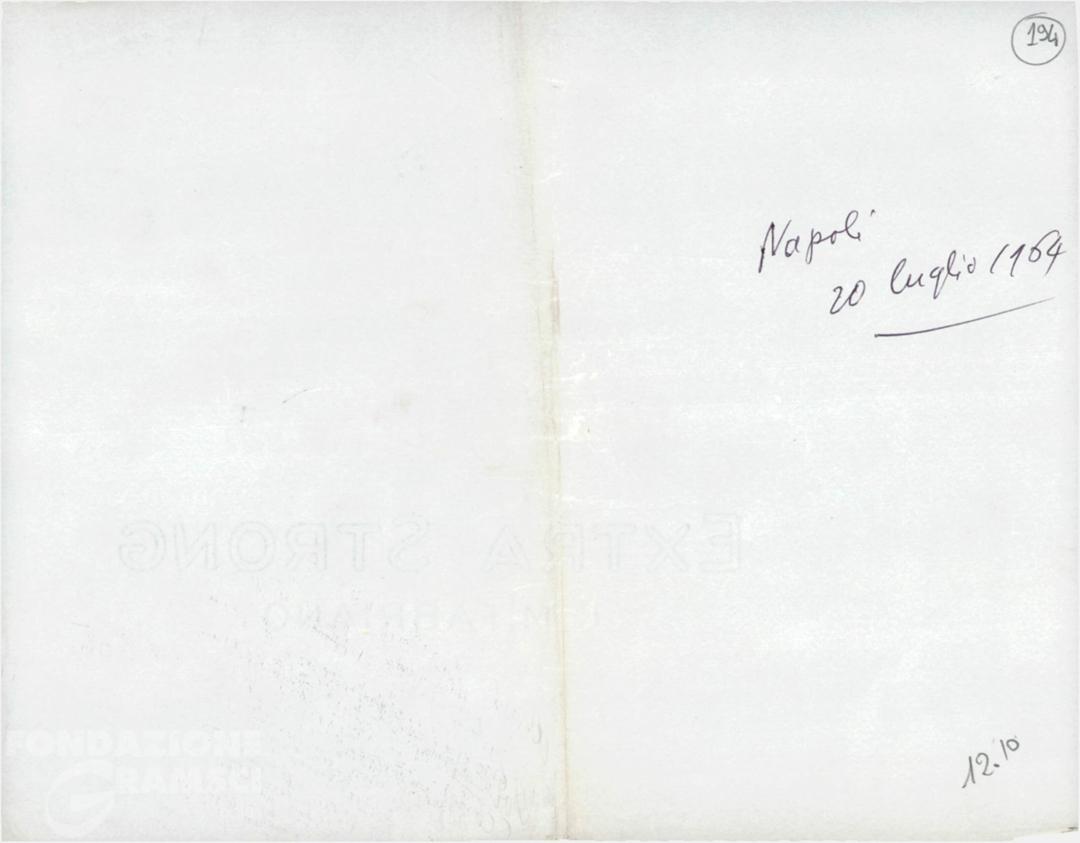 194
Napoli
20 luglio 1964
12.10
EXTRA STRONG
FONDAZIONE
GRAMSCI